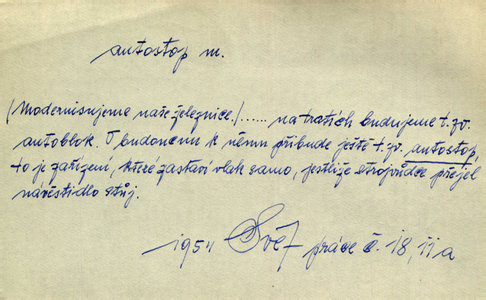 autostop m.
/Modernisujeme naše železnice./...... na tratích budujeme t.zv.
autoblok. V budoucnu k němu přibude ještě t.zv. autostop,
to je zařízení, které zastaví vlak samo, jestliže strojvůdce přejel
návěstidlo stůj.
1954 Svět práce č. 18, 11a